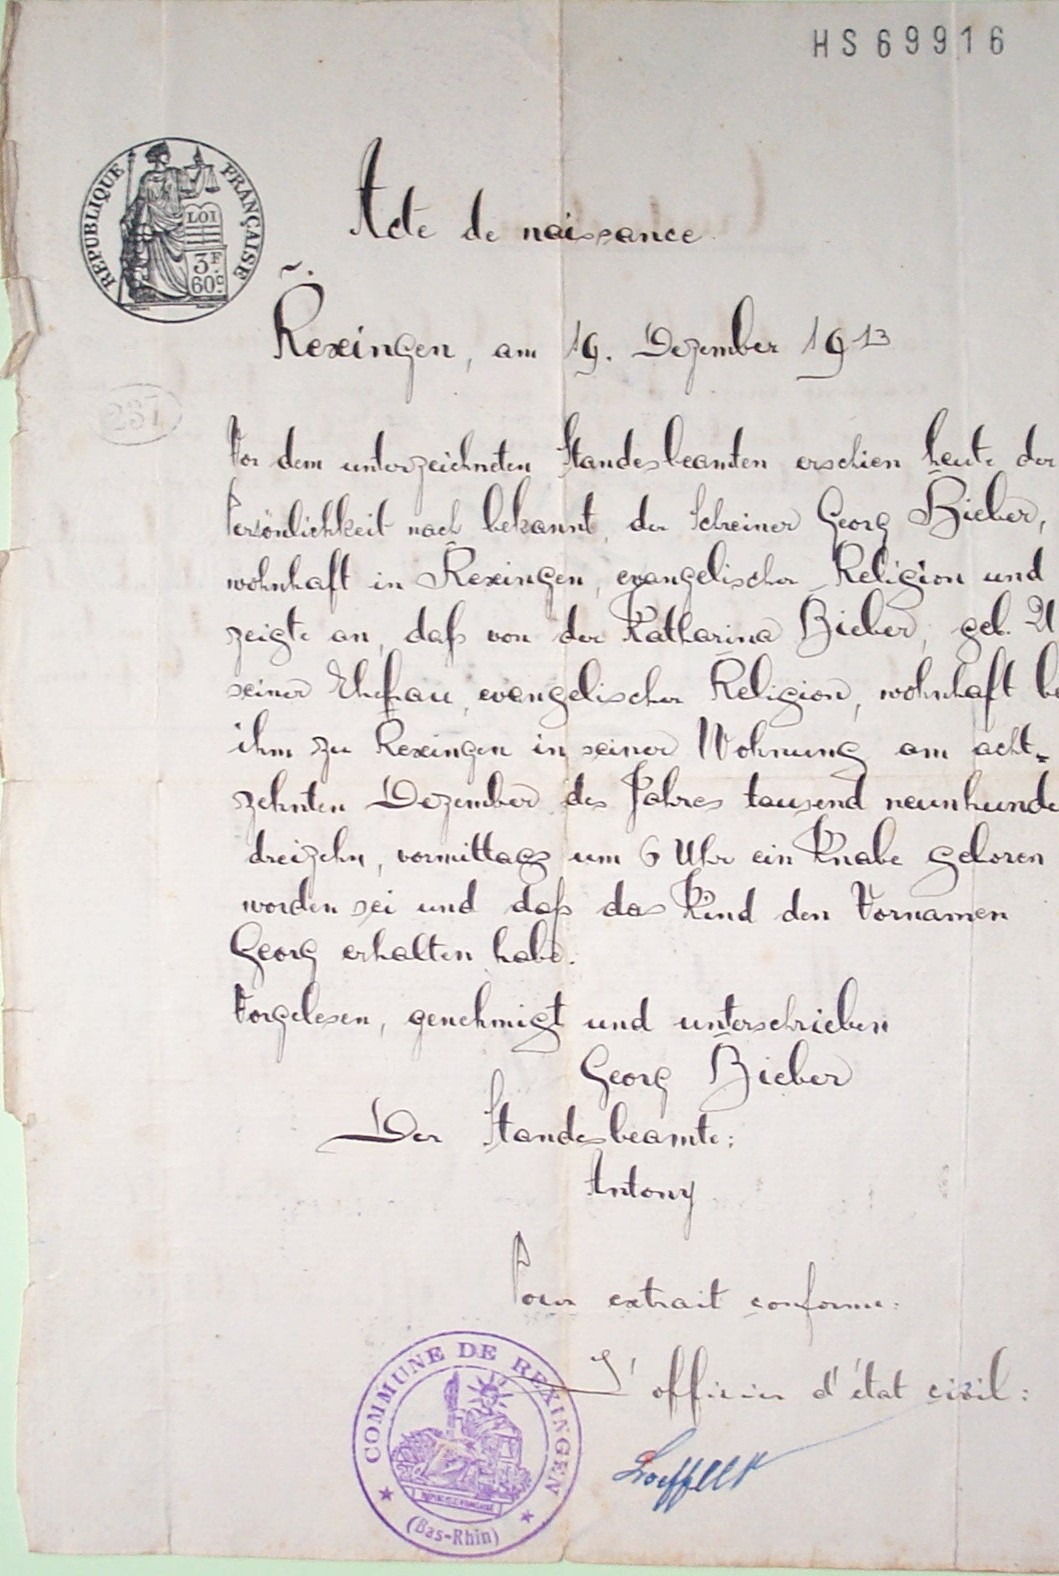 HS 69916
RÉPUBLIQUE FRANÇAISE
LOI
3F
60c
Acte de naissance
Rexingen, am 19. Dezember 1913
237
Vor dem unterzeichneten Standesbeamten erschien heute der
Persönlichkeit nach bekannt, der Schreiner Georg Bieber,
wohnhaft in Rexingen, evangelischer Religion und
zeigte an, daß von der Katharina Bieber, geb.
seiner Ehefrau, evangelischer Religion, wohnhaft be
ihm zu Rexingen in seiner Wohnung am acht-
zehnten Dezember des Jahres tausend neunhunde
dreizehn, vormittags um 6 Uhr ein Knabe geboren
worden sei und daß das Kind den Vornamen
Georg erhalten habe.
Vorgelesen, genehmigt und unterschrieben
Georg Bieber
Der Standesbeamte:
Antony
Pour extrait conforme:
L'officier d'état civil:
COMMUNE DE REXINGEN
(Bas-Rhin)